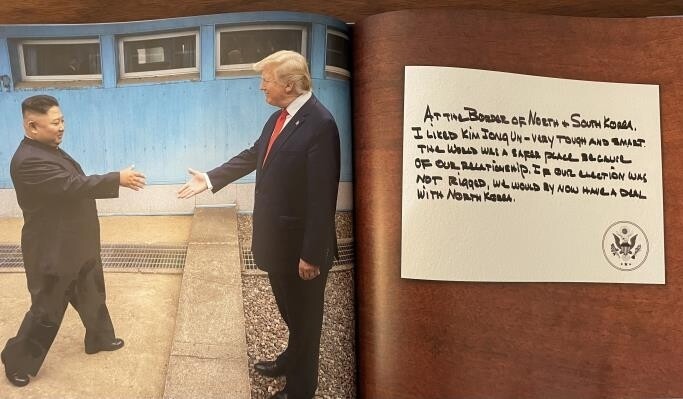 AT THE BORDER OF NORTH + SOUTH KOREA.
I LIKED KIM JONG UN - VERY TOUGH AND SMART
THE WORLD WAS A SAFER PLACE BECAUSE
OF OUR RELATIONSHIP. IF OUR ELECTION WAS
NOT RIGGED, WE WOULD BY NOW HAVE A DEAL
WITH NORTH KOREA.